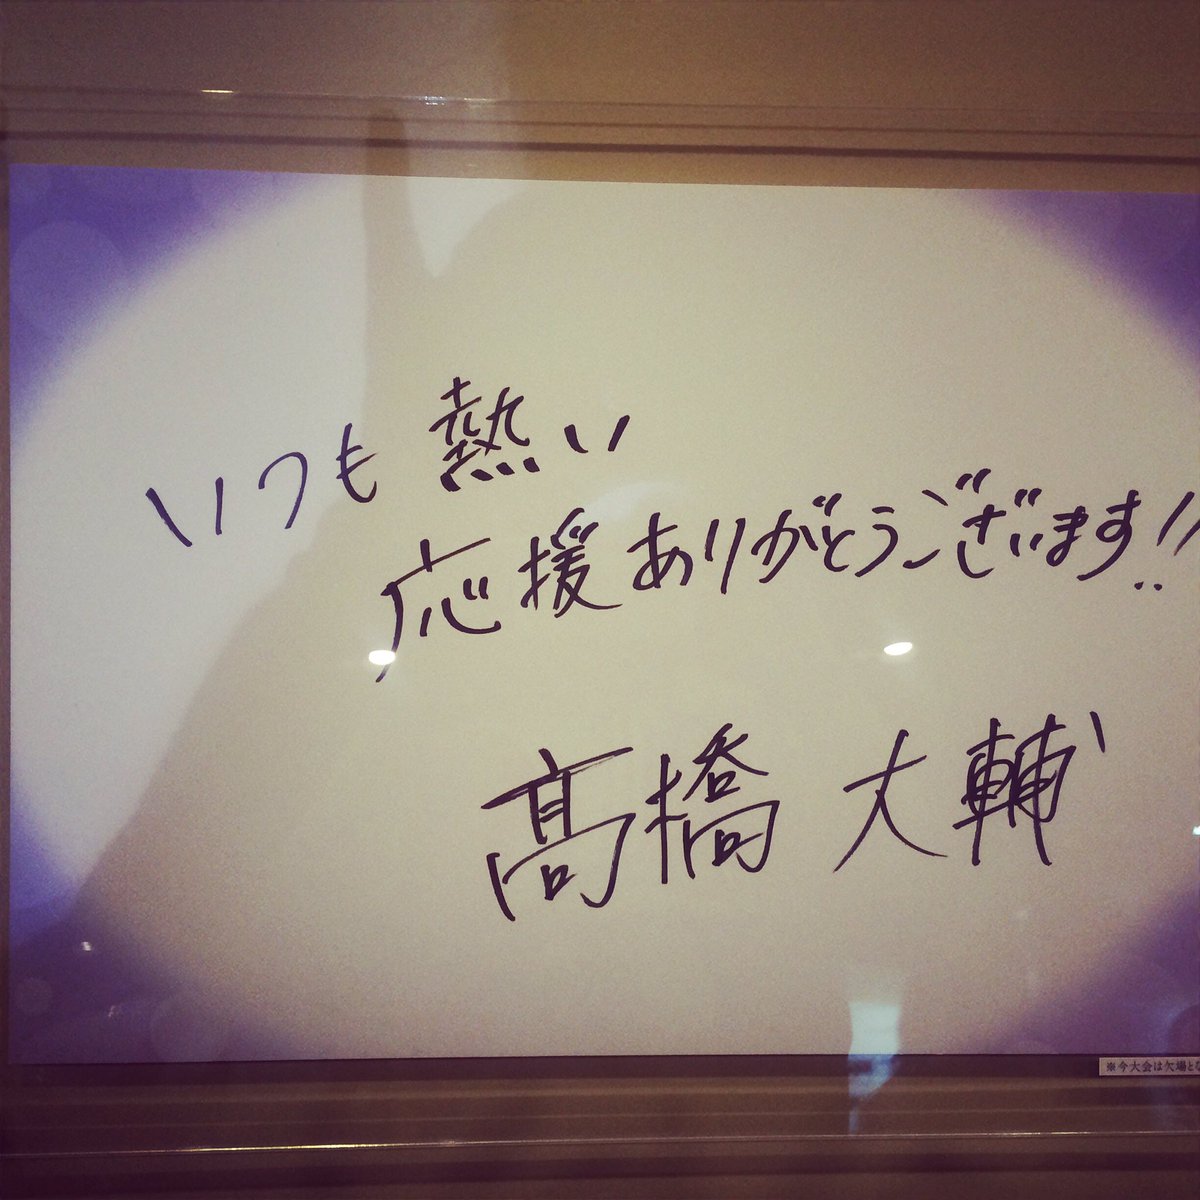 いつも熱い
応援ありがとうございます!!
髙橋大輔
※今大会は欠場とな